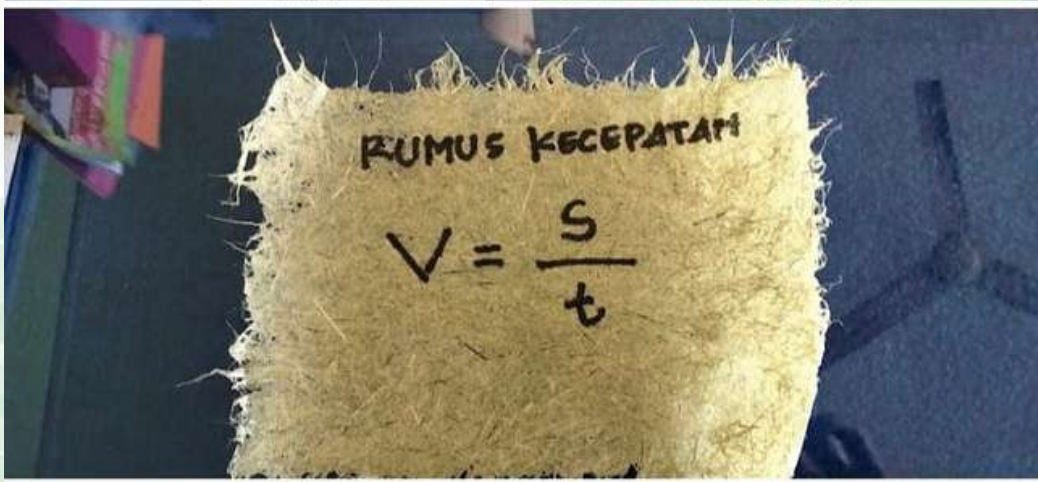 RUMUS KECEPATAN
V = s
t